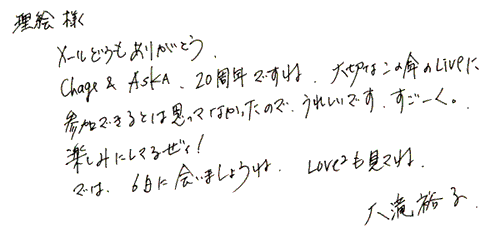 理絵 様
メールどうもありがとう.
Chage & ASKA、20周年ですね. 大切なこの年のLiveに
参加できるとは思ってなかったので、うれしいです. すごーく。
楽しみにしてるぜィ!
では、6日に会いましょうね. Love²も見てね.
大滝裕子